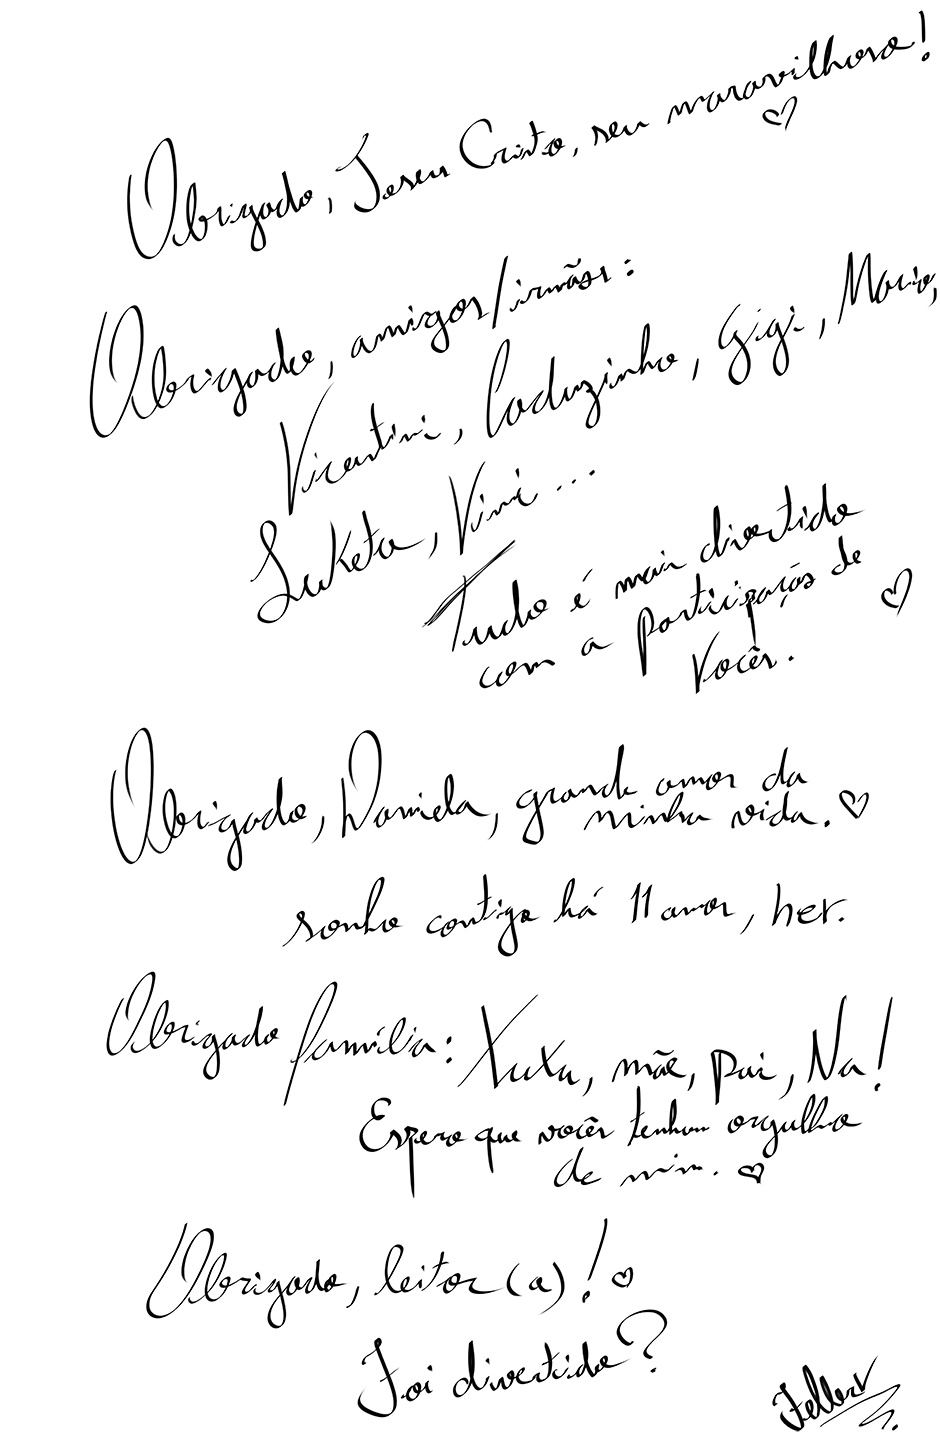 Obrigado, Jesus Cristo, seu maravilhoso! ♡
Obrigado, amigos/irmãos:
Vicentini, Caduzinho, Gigi, Mario,
Luketa, Vini...
Tudo é mais divertido
com a participação de
vocês. ♡
Obrigado, Daniela, grande amor da
minha vida. ♡
sonho contigo há 11 anos, her.
Obrigado família: Xuxa, mãe, pai, Na!
Espero que vocês tenham orgulho
de mim. ♡
Obrigado, leitor(a)! ♡
Foi divertido?